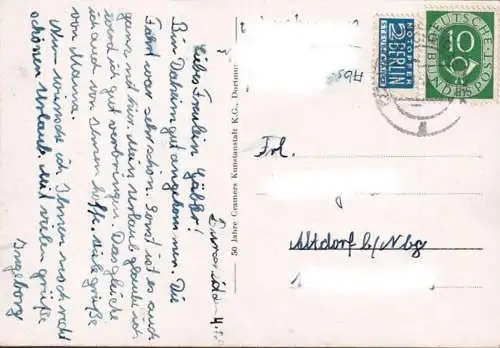 Liebes Fräulein Gäbler!
Bin Daheim gut angekommen. Die
Fahrt war sehr schön. Sonst ist es auch
ganz nett hier. Mein Urlaub glaube ich
werd ich gut verbringen. Das gleiche
ich auch von Ihnen hoffe. Viele grüße
von Mama.
Nun wünsche ich Ihnen noch recht
schönen Urlaub. Mit vielen grüße
Ingeborg
50 Jahre Cramers Kunstanstalt K.G., Dortmund
Abs.
NOTOPFER
2 BERLIN
STEUERMARKE
DEUTSCHE POST
10
Frl.
Altdorf b/Nbg